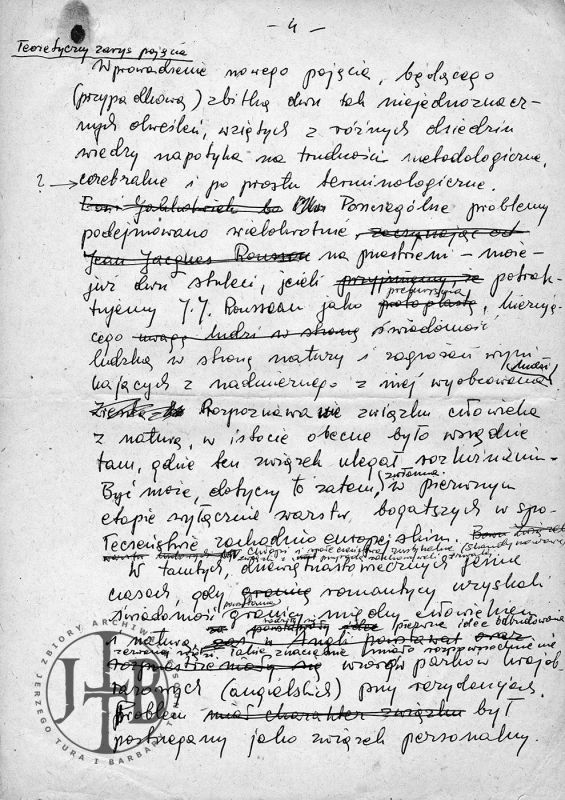 - 4 -
Teoretyczny zarys pojęcia
Wprowadzenie nowego pojęcia, będącego
(przypadkową) zbitką dwu tak niejednoznacz-
nych określeń, wziętych z różnych dziedzin
wiedzy napotyka na trudności metodologiczne,
? → cerebralne i po prostu terminologiczne.
Poszczególne problemy
podejmowano wielokrotnie, zaczynając od
Jean Jacques Rousseau na przestrzeni - może -
już dwu stuleci, jeżeli przyjmujemy że potrak-
tujemy J.J. Rousseau jako protoplastę, kierują-
cego uwagę ludzi w stronę świadomość
ludzką w stronę natury i zagrożeń wyni
(ludzi)
kających z nadmiernego z niej wyobcowania
Rozpoznawanie związku człowieka
z naturą, w istocie obecne było wszędzie
tam, gdzie ten związek ulegał rozluźnieniu.
Być może, dotyczy to zatem, w pierwszym
etapie wyłącznie warstw, bogatszych w spo-
łeczeństwie zachodnio europejskim.
W tamtych, dziewiętnastowiecznych jeszcze
czasach, gdy granicę romantycy uzyskali
świadomość granicy między człowiekiem
i naturą, pierwsze idee
wzorów parków krajob-
razowych (angielskich) przy rezydencjach.
Problem miał charakter związku był
postrzegany jako związek personalny.
ZBIORY ARCHIW
JERZEGO TURA I BARBA
JTB